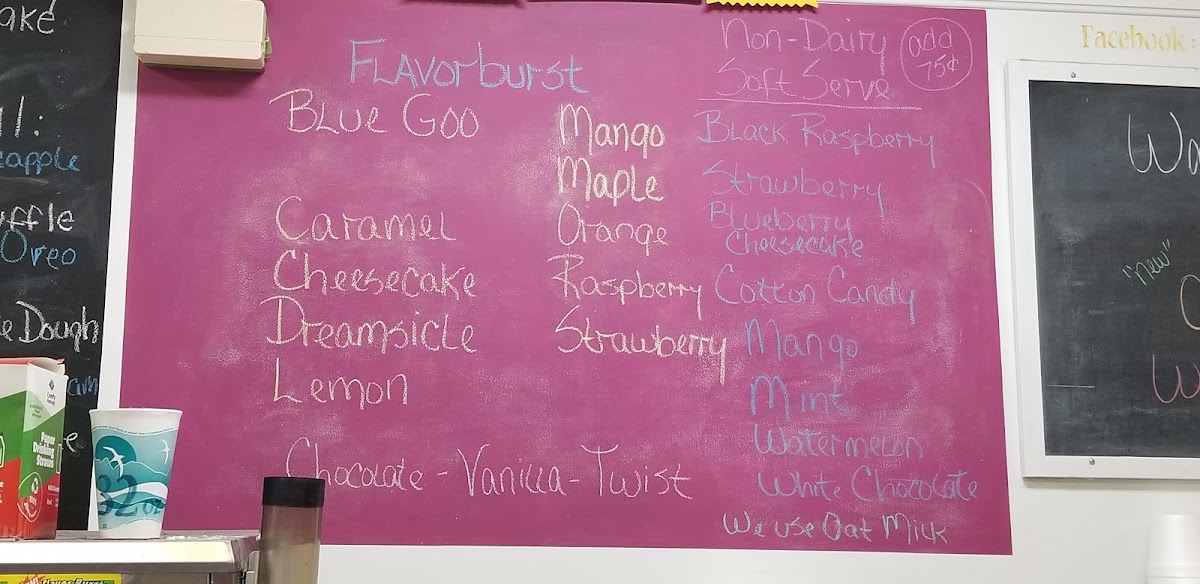 ake
ll:
eapple
uffle
Oreo
e Dough
am
e
Flavorburst
Blue Goo
Caramel
Cheesecake
Dreamsicle
Lemon
Mango
Maple
Orange
Raspberry
Strawberry
Chocolate - Vanilla - Twist
Non-Dairy
Soft Serve
add
75¢
Black Raspberry
Strawberry
Blueberry
Cheesecake
Cotton Candy
Mango
Mint
Watermelon
White Chocolate
We use Oat Milk
Facebook:
Wa
"new"
Paper
Drinking
Straws
32 oz